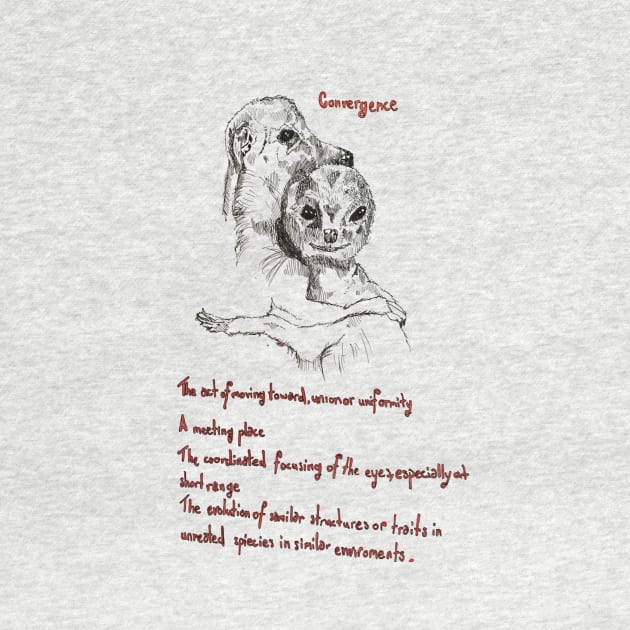 Convergence
The act of moving toward, union or uniformity
A meeting place
The coordinated focusing of the eyes, especially at
short range
The evolution of similar structures or traits in
unrealed spiecies in similar enviroments.